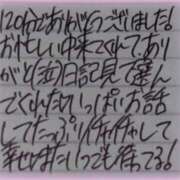 120分でありがとうございました!
お忙しい中来てくれてあり
がと(泣)日記見て選ん
でくれたいっぱいお話
してたっぷりイチャイチャして
幸せまたいつでも待ってる!